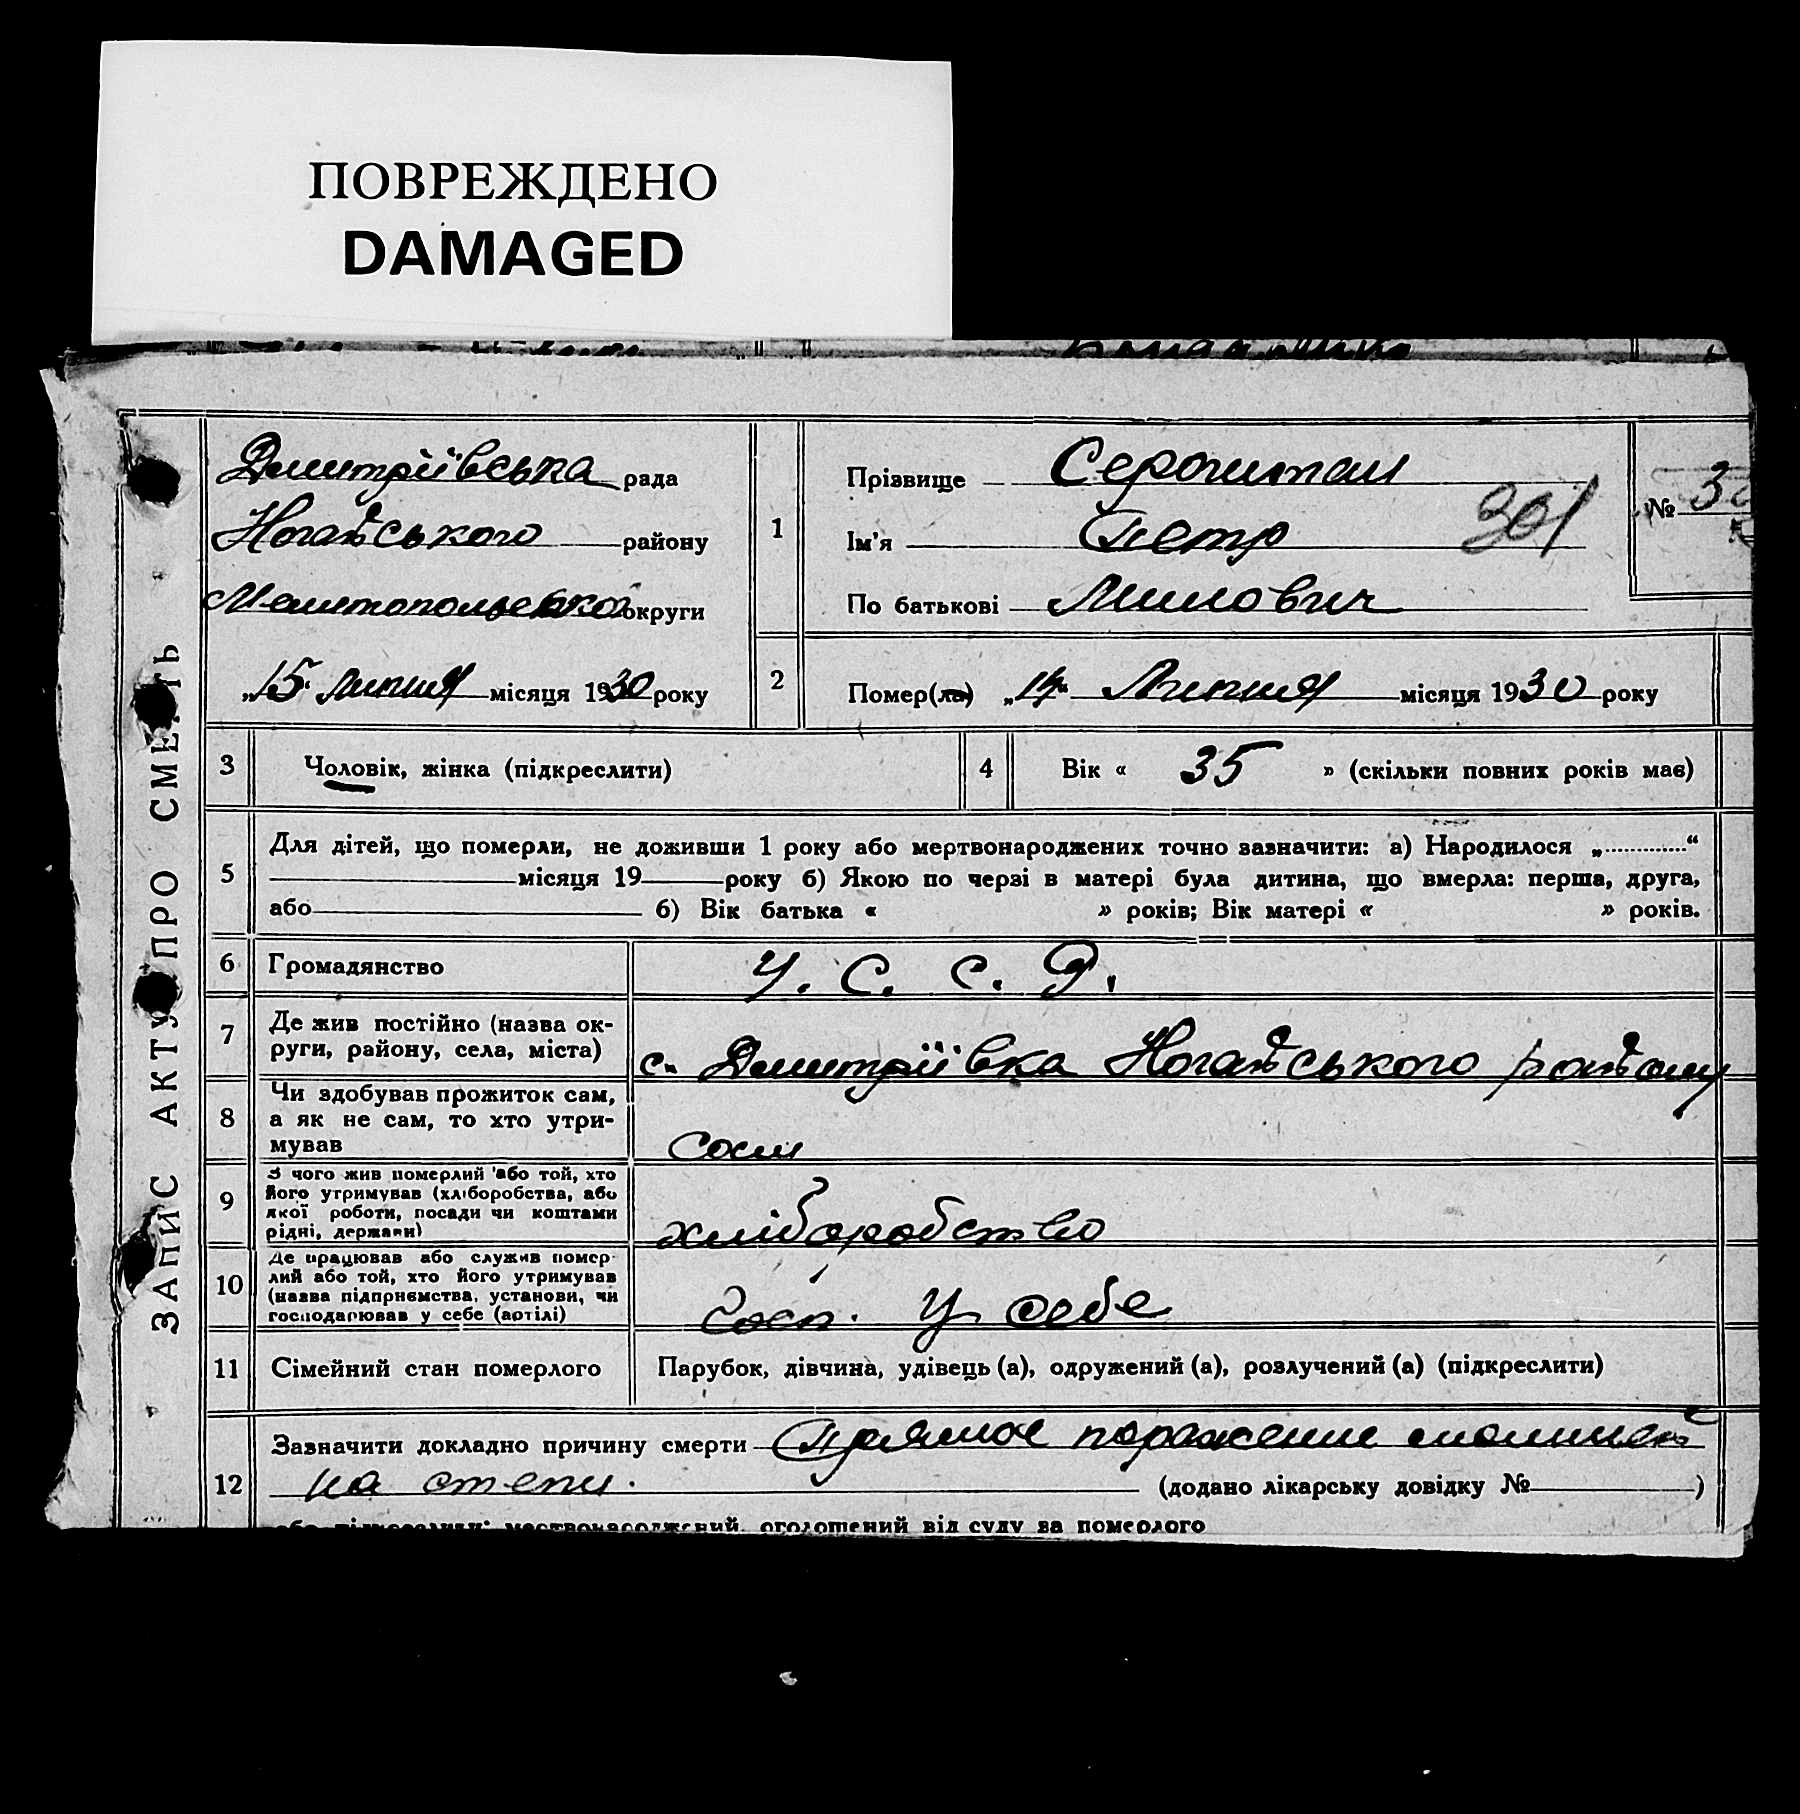 ПОВРЕЖДЕНО
DAMAGED
ЗАПИС АКТУ ПРО СМЕРТЬ
Дмитріївська рада
Ногайського району
Мелітопольської округи
„15" Липня місяця 1930 року
1
Прізвище
Ім'я Петр
301
По батькові
№ 30
2
Помер(ла) „ Липня місяця 1930 року
3
Чоловік, жінка (підкреслити)
4
Вік « 35 » (скільки повних років має)
5
Для дітей, що померли, не доживши 1 року або мертвонароджених точно зазначити: а) Народилося „ “
місяця 19 року б) Якою по черзі в матері була дитина, що вмерла: перша, друга,
або б) Вік батька « » років; Вік матері « » років.
6
Громадянство
У. С. С. Р.
7
Де жив постійно (назва ок-
руги, району, села, міста)
с. Дмитріївка Ногайського району
8
Чи здобував прожиток сам,
а як не сам, то хто утри-
мував
сам
9
З чого жив померлий або той, хто
його утримував (хліборобства, або
якої роботи, посади чи коштами
рідні, держави)
хліборобство
10
Де працював або служив помер-
лий або той, хто його утримував
(назва підприємства, установи, чи
господарював у себе (артілі)
Госп. У себе
11
Сімейний стан померлого
Парубок, дівчина, удівець (а), одружений (а), розлучений (а) (підкреслити)
12
Зазначити докладно причину смерти Прямое поражение молнией
на степи.
(додано лікарську довідку № )
або підкреслити: мертвонароджений, оголошений від суду за померлого